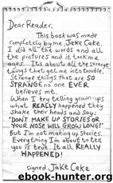 DEAR READER,
This book was made
completely by me, JAKE CAKE.
I did all the words and all
the pictures and it took me
ages. It's about all the strange
things that get me into trouble.
STRANGE things that are SO
STRANGE no one EVER
believes me.
When I try telling grown-ups
what REALLY happened they
shake their heads and say:
"DON'T MAKE UP STORIES OR
YOUR NOSE WILL GROW LONG!"
But I'm not making up stories.
Everything I'm about to tell
you is true. It all REALLY
HAPPENED!
signed JAKE CAKE
ebook-hunter.org